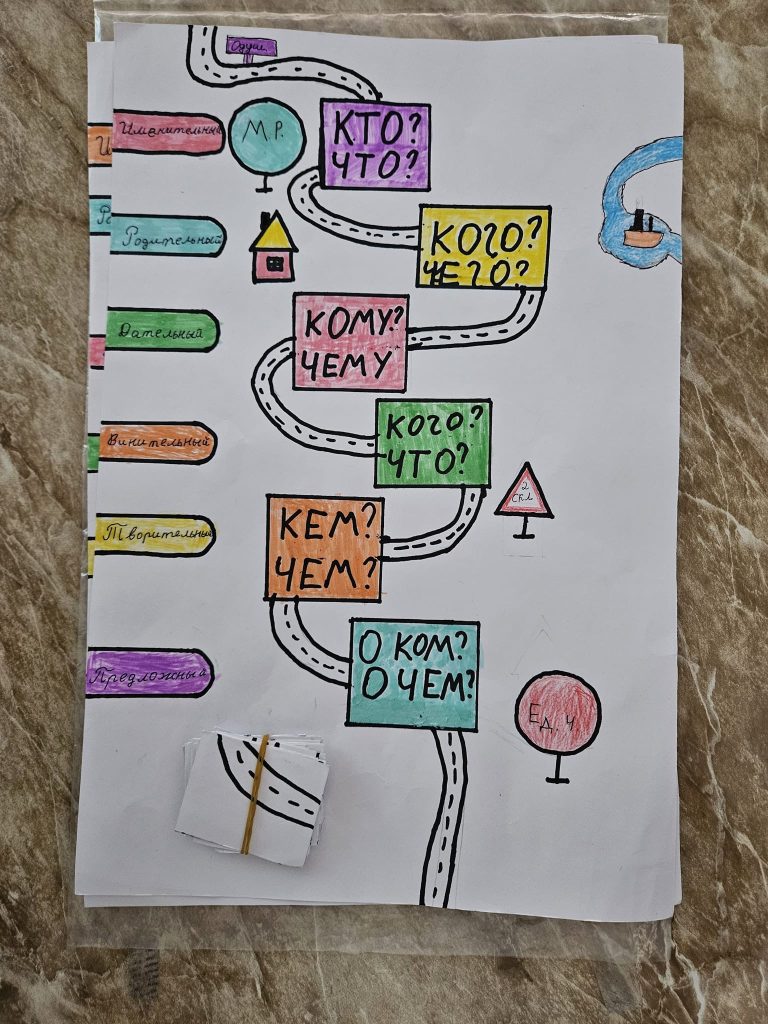 Одуш.
Именительный
М.Р.
КТО?
ЧТО?
И
Ро
Родительный
КОГО?
ЧЕГО?
Дательный
КОМУ?
ЧЕМУ
Винительный
КОГО?
ЧТО?
2
скл
Творительный
КЕМ?
ЧЕМ?
Предложный
О КОМ?
О ЧЕМ?
Ед. ч